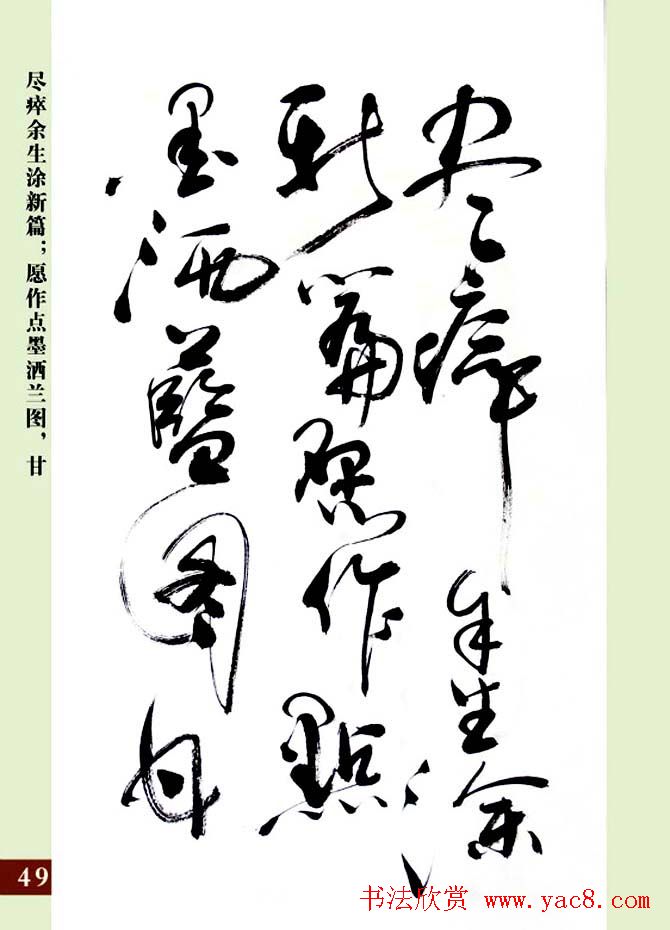 尽瘁余生涂新篇；愿作点墨洒兰图，甘
尽瘁余生涂
新篇愿作點
墨洒藍图甘
49
书法欣赏 www.yac8.com